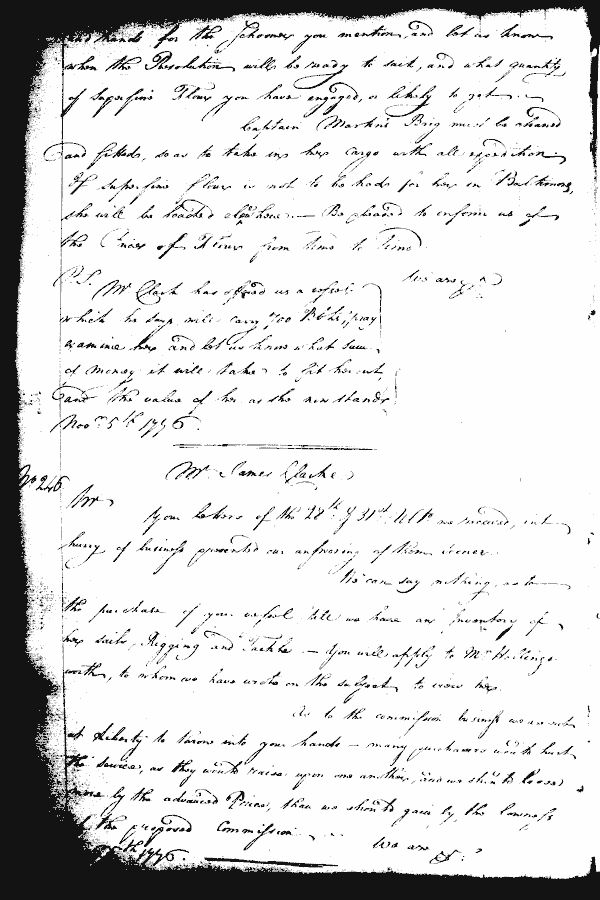 and hands for the Schooner you mention, and let us know
when the Resolution will be ready to sail, and what quantity
of superfine Flour you have engaged, or likely to get
Captain Martin's Brig must be cleaned
and fitted, so as to take in her cargo with all expedition
If superfine flour is not to be had for her in Baltimore,
she will be loaded elsewhere. — Be pleased to inform us of
the Prices of Flour from time to time
We are &c
P.S.
Mr Clark has offered us a vessel
which he says will carry 700 Bbls; pray
examine her and let us know what sum
of money it will take to fit her out,
and the value of her as she now stands
Novr 5th 1776.
Mr James Clarke
No 246
Sir
Your letters of the 28th & 31st Ulto we received, but
hurry of business prevented our answering of them sooner
We can say nothing, as to
the purchase of your vessel till we have an Inventory of
her sails, Rigging and Tackle — You will apply to Mr Hollings
worth, to whom we have wrote on the subject to view her.
As to the commission business we are not
at Liberty to throw into your hands — many purchasers would hurt
the service, as they would raise upon one another, and we should loose
more by the advanced Price, than we should gain by, the lowness
of the proposed Commission
We are &c
5th 1776.